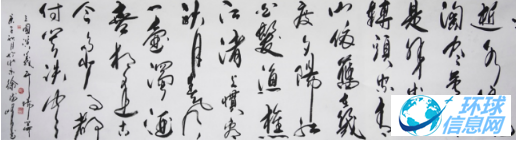 逝水
淘尽英
是非成
转头空青
山依旧在几
度夕阳红
白发渔樵
江渚上惯看
秋月春风
一壶浊酒
喜相逢古
今多少事都
付笑谈中
三国演义开篇
环球
信息网